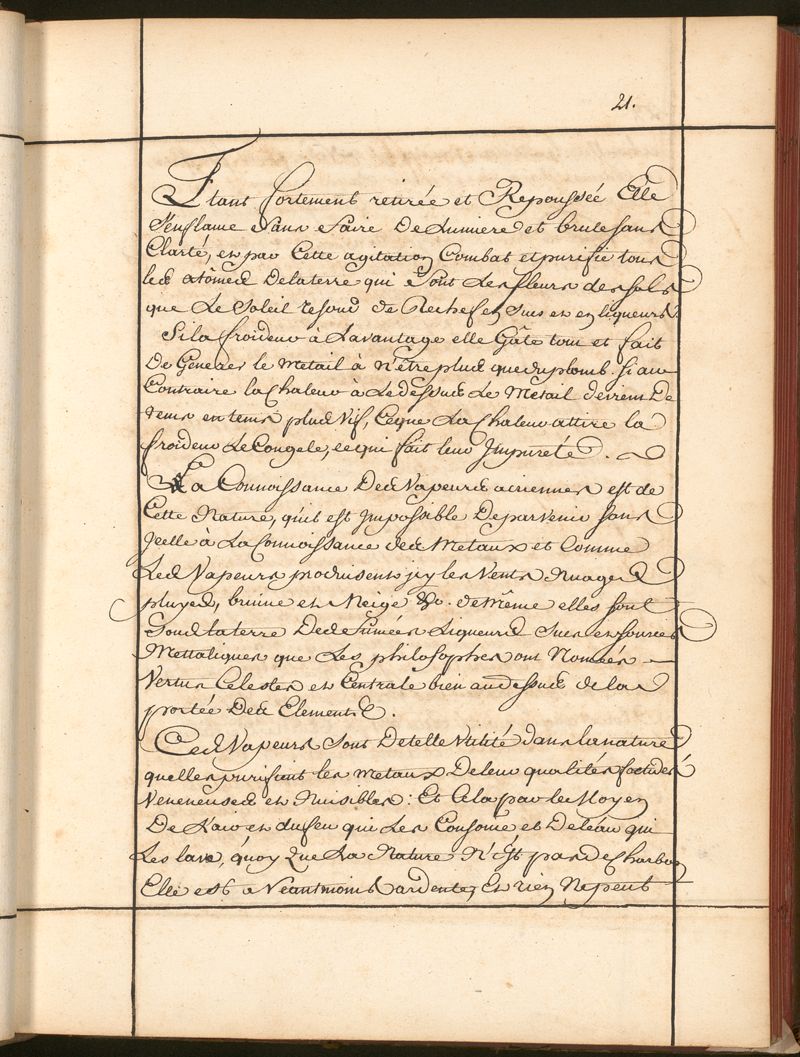 21.
Etant fortement retirée et Repoussée Elle
s'enflame sans faire De Lumiere et brule sans
Clarté, et par Cette agitation Combat et purifie tous
les atômes De la terre qui sont Les fleurs des sels
que Le Soleil resoud de Rechef en sucs et en liqueurs.
Si la froideur à L'avantage elle Gâte tout et fait
De Generer le Metail à n'être plus que du plomb. Si au
Contraire la Chaleur à Le dessus Le Metail devient De
tems en tems plus Vif, Ceque La Chaleur attire la
froideur Le Congele, ce qui fait leur Jmpureté.
La Connoissance Des Vapeurs aëriennes est de
Cette Nature, qu'il est Jmpossible De parvenir sans
Jcelle à La Connoissance des Metaux et Comme
Les Vapeurs produisent jcy les Vents Nuages
pluyes, bruine et Neige &c. de Même elles sont
Sous la terre Des fumées Liqueurs Sucs et sources
Mettaliques que Les philosophes ont Nomées
Vertus Celestes et Centrale bien au dessus de la
portée Des Elements.
Ces Vapeurs sont De telle Utilité dans la nature
quelles purifient les Metaux De leur qualités
Veneneuses et Nuisibles: Et Cela par le Moyen
De L'air et du feu qui Les Consome et De l'eau qui
Les lave, quoy Que La Nature N'est pas de Charbon
Elle est a Neantmoins ardente, Et rien Ne peut